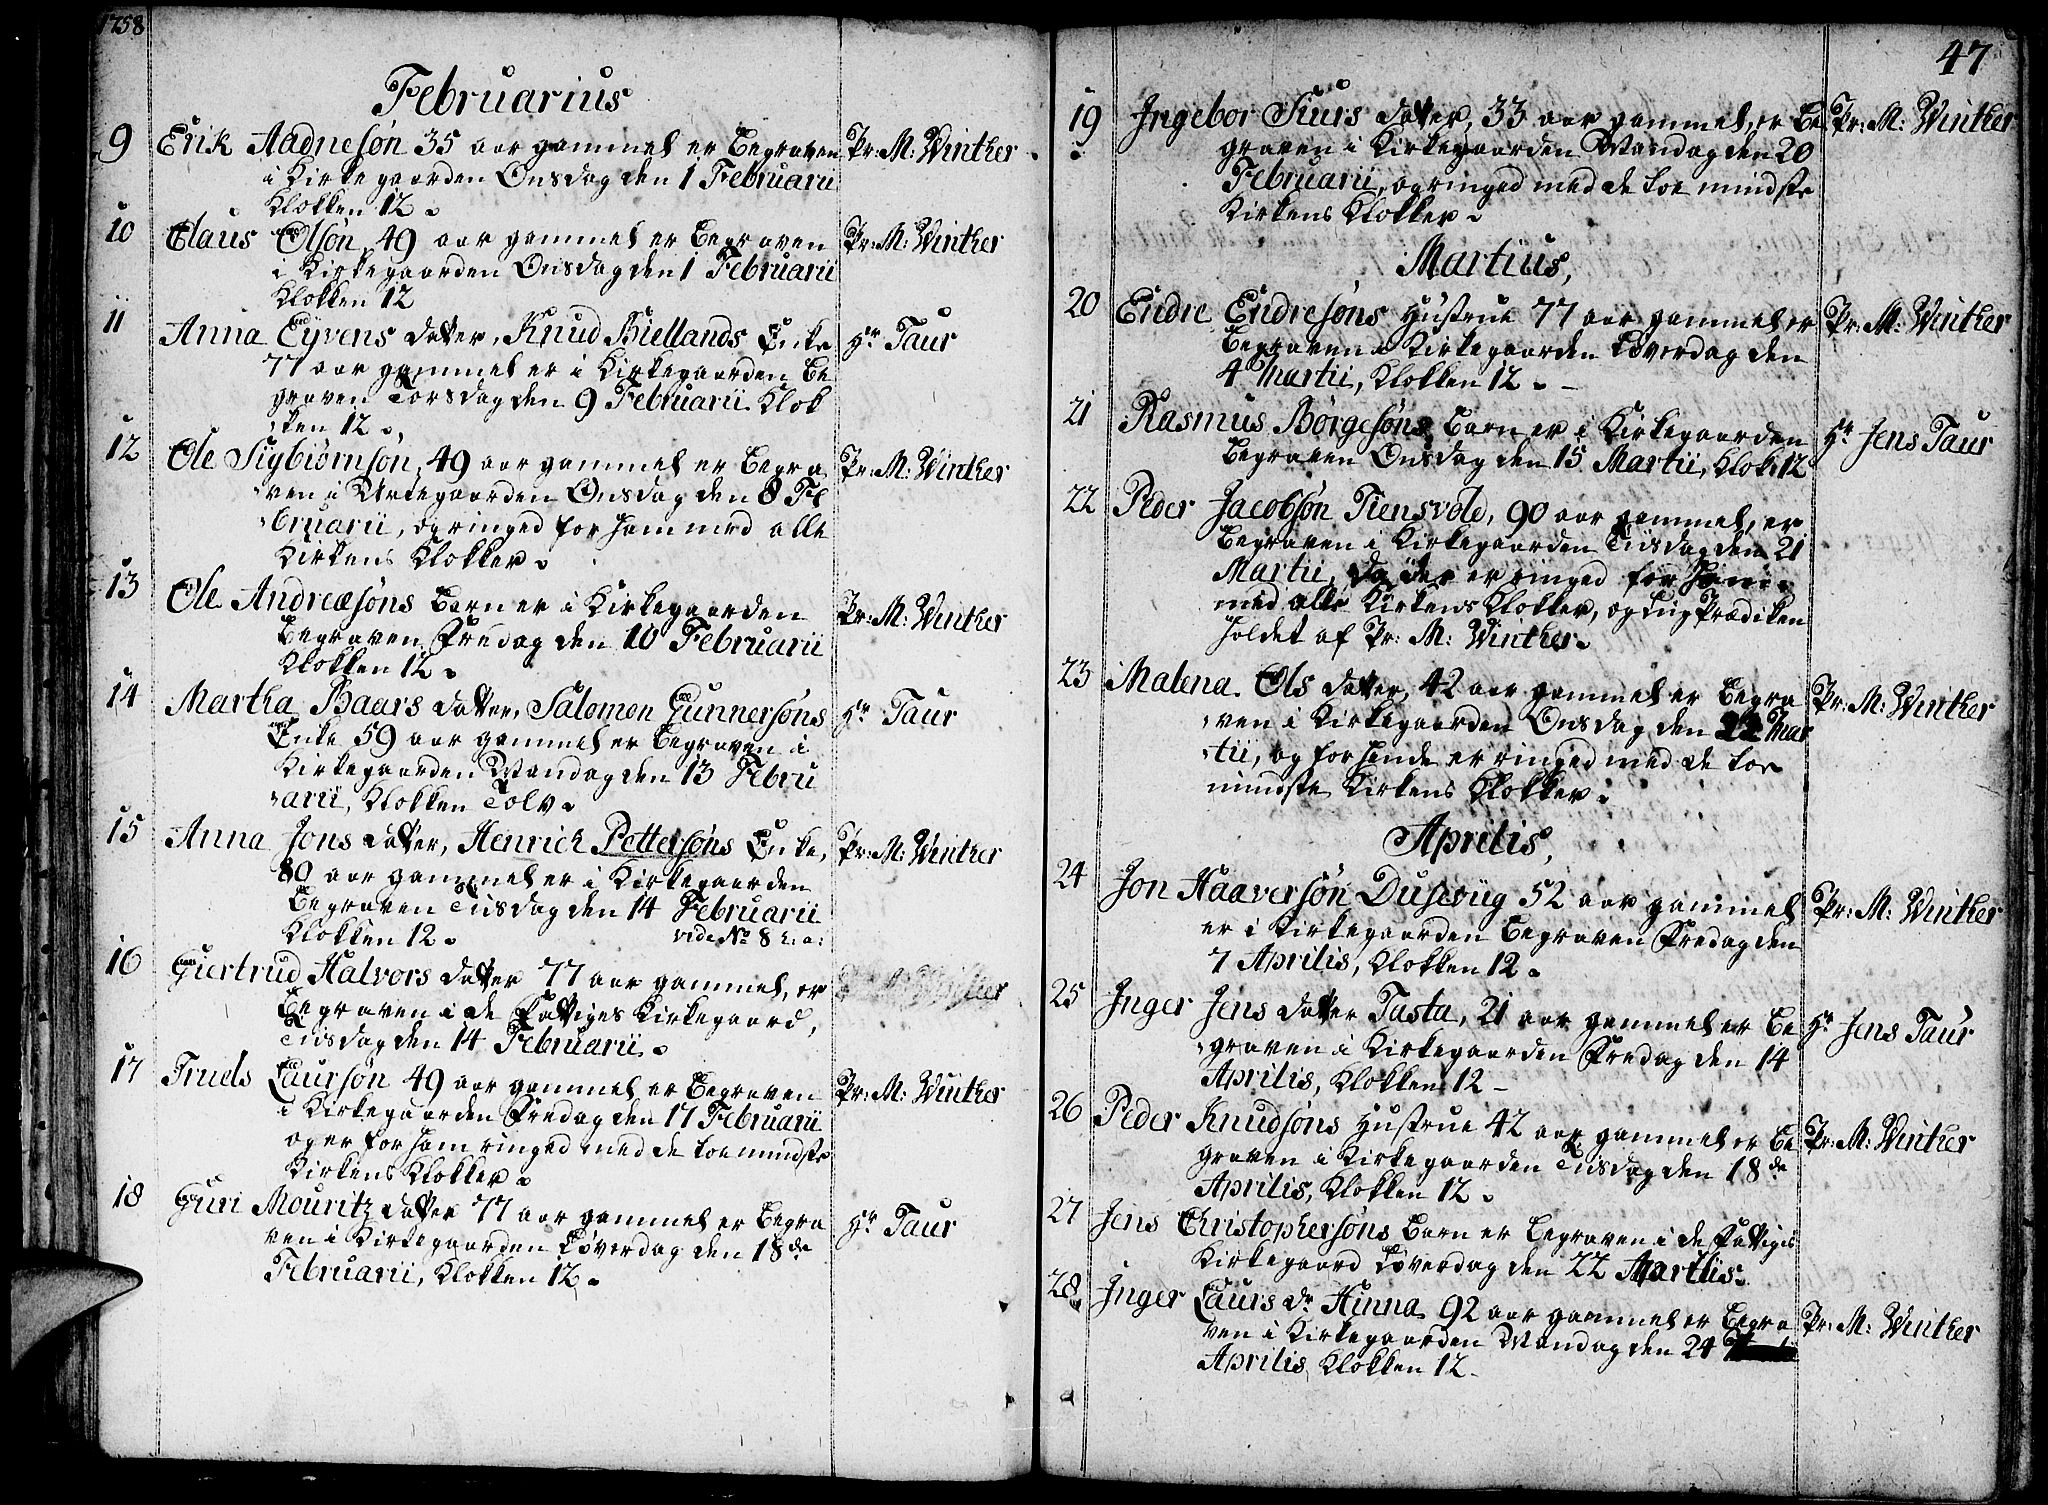 1758
Februarius
9 Erik Aadnesøn 35 aar gammel er Begraven Pr: M: Winther
i Kirkegaarden Onsdag den 1 Februarii
Klokken 12.
10 Claus Olsøn, 49 aar gammel er Begraven Pr: M: Winther
i Kirkegaarden Onsdag den 1 Februarii
Klokken 12
11 Anna Eyvens datter, Knud Kiellands Enke Hr Taur
77 aar gammel er i Kirkegaarden Be
graven Torsdag den 9 Februarii Klok
ken 12.
12 Ole Sigbiørnsøn, 49 aar gammel er Begra Pr: M: Winther
ven i Kirkegaarden Onsdag den 8 Fe
bruarii, og ringed for ham med alle
Kirkens Klokker.
13 Ole Andreæsøns Barn er i Kirkegaarden Pr: M: Winther
Begraven Fredag den 10 Februarii
Klokken 12.
14 Martha Baars datter, Salomon Gunnersøns Hr Taur
Enke 59 aar gammel er Begraven i
Kirkegaarden Mandag den 13 Febru
arii, Klokken Tolv.
15 Anna Jons datter, Henrich Pettersøns Enke, Pr: M: Winther
80 aar gammel er i Kirkegaarden
Begraven Tiisdag den 14 Februarii
Klokken 12. vide No 8 h: a:
16 Giertrud Halvors datter 77 aar gammel, er
Begraven i de Fattiges Kirkegaard,
Tiisdag den 14 Februarii.
17 Truels Laursøn 49 aar gammel er Begraven Pr: M: Winther
i Kirkegaarden Fredag den 17 Februarii
og er for ham ringed med de toe mindste
Kirkens Klokker.
18 Guri Mouritz datter 77 aar gammel er Begra Hr Taur
ven i Kirkegaarden Løverdag den 18de
Februarii, Klokken 12.
47
19 Ingebor Siurs datter, 33 aar gammel, er Be Pr: M: Winther
graven i Kirkegaarden Mandag den 20
Februarii, og ringed med de toe mindste
Kirkens Klokker.
Martius,
20 Endre Endresøns Hustrue 77 aar gammel er Pr: M: Winther
Begraven i Kirkegaarden Løverdag den
4 Martii, Klokken 12.
21 Rasmus Børgesøns Barn er i Kirkegaarden Hr Jens Taur
Begraven Onsdag den 15 Martii, Klok: 12
22 Peder Jacobsøn Tiensvold, 90 aar gammel, er
Begraven i Kirkegaarden Tiisdag den 21
Martii, da der er ringed for ham
med alle Kirkens Klokker, og Liig Prædiken
holdet af Pr: M: Winther.
23 Malena Ols datter, 42 aar gammel er Begra Pr: M: Winther
ven i Kirkegaarden Onsdag den 22 Mar
tii, og for hende er ringed med de toe
mindste Kirkens Klokker.
Aprilis,
24 Jon Haaversøn Dusevüg 52 aar gammel Pr: M: Winther
er i Kirkegaarden Begraven Fredag den
7 Aprilis, Klokken 12.
25 Inger Jens datter Tasta, 21 aar gammel er Be Hr Jens Taur
graven i Kirkegaarden Fredag den 14
Aprilis, Klokken 12
26 Peder Knudsøns Hustrue 42 aar gammel er Be Pr: M: Winther
graven i Kirkegaarden Tiisdag den 18de
Aprilis, Klokken 12.
27 Jens Christophersøns Barn er Begraven i de Fattiges
Kirkegaard Løverdag den 22 Aprilis.
28 Inger Laurs dr Hinna 92 aar gammel er Begra Pr: M: Winther
ven i Kirkegaarden Mandag den 24
Aprilis, Klokken 12